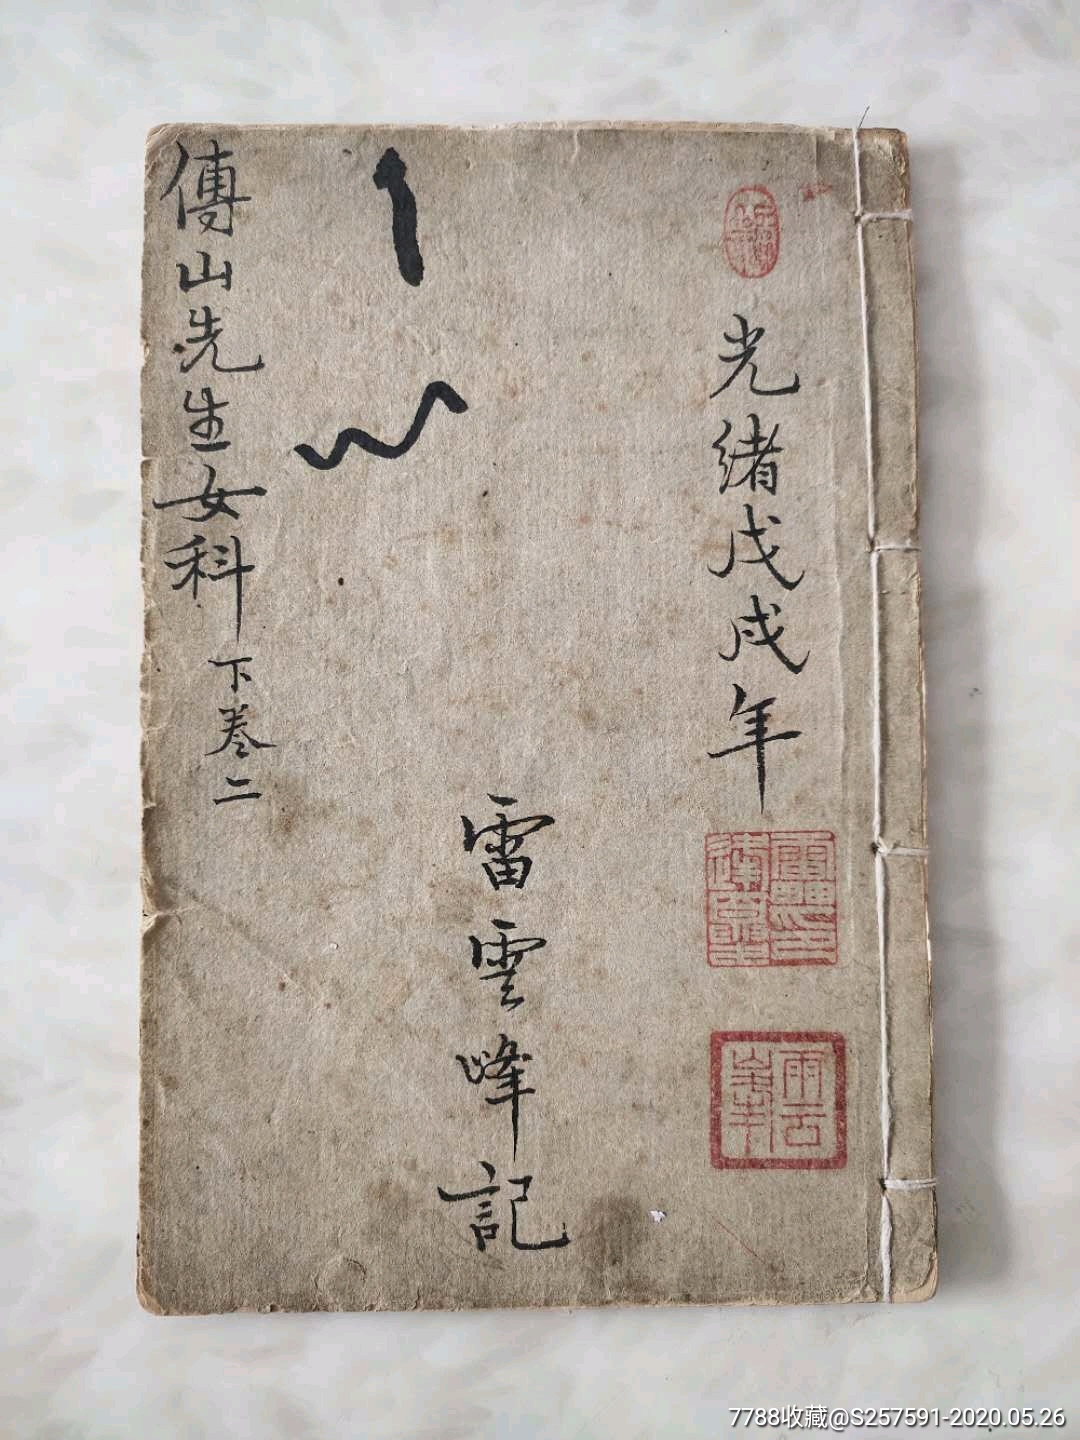 光緒戊戌年
雷雲峰記
傅山先生女科 下卷二
7788收藏@S257591-2020.05.26